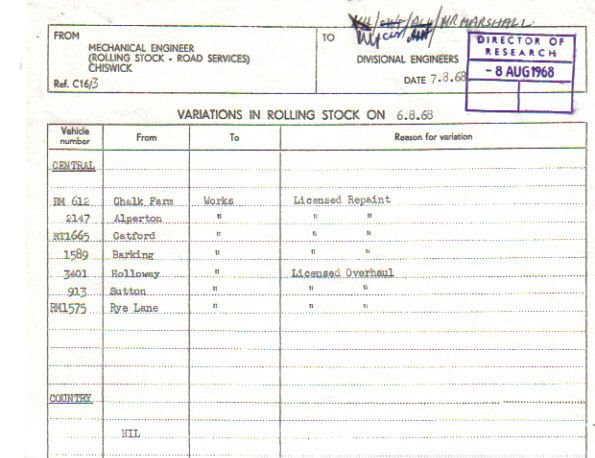 MR MARSHALL.
FROM
MECHANICAL ENGINEER
(ROLLING STOCK - ROAD SERVICES)
CHISWICK
Ref. C16/3
TO
DIVISIONAL ENGINEERS
DATE 7.8.68
DIRECTOR OF
RESEARCH
- 8 AUG 1968
VARIATIONS IN ROLLING STOCK ON 6.8.68
Vehicle number From To Reason for variation
CENTRAL
RM 612 Chalk Farm Works Licensed Repaint
2147 Alperton " " "
RT1665 Catford " " "
1589 Barking " " "
3401 Holloway " Licensed Overhaul
913 Sutton " " "
RM1575 Rye Lane " " "
COUNTRY
NIL